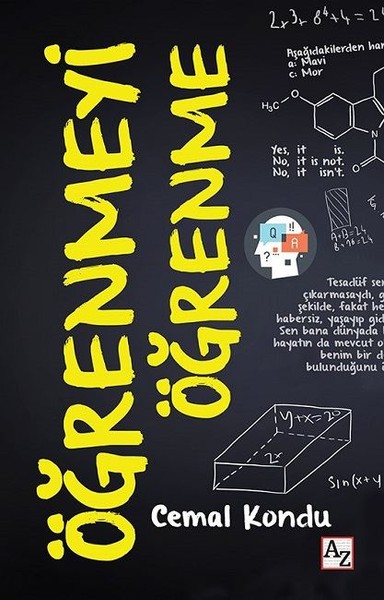 ÖĞRENMEYİ
ÖĞRENME
2x³+8⁴+4=2
Aşağıdakilerden han
a: Mavi
c: Mor
H₃C
O
N
O
Yes, it is.
No, it is not.
No, it isn't.
Q
A
?
!!
A+B=24
Tesadüf ser
çıkarmasaydı, g
şekilde, fakat he
habersiz, yaşayıp gid
Sen bana dünyada
hayatın da mevcut o
benim bir d
bulunduğunu
y+x=20
2x
Sin(x+y
Cemal Kondu
AZ